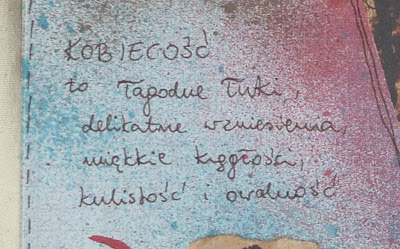 KOBIECOŚĆ
to łagodne łuki,
delikatne wzniesienia,
miękkie krągłości,
kulistość i owalność